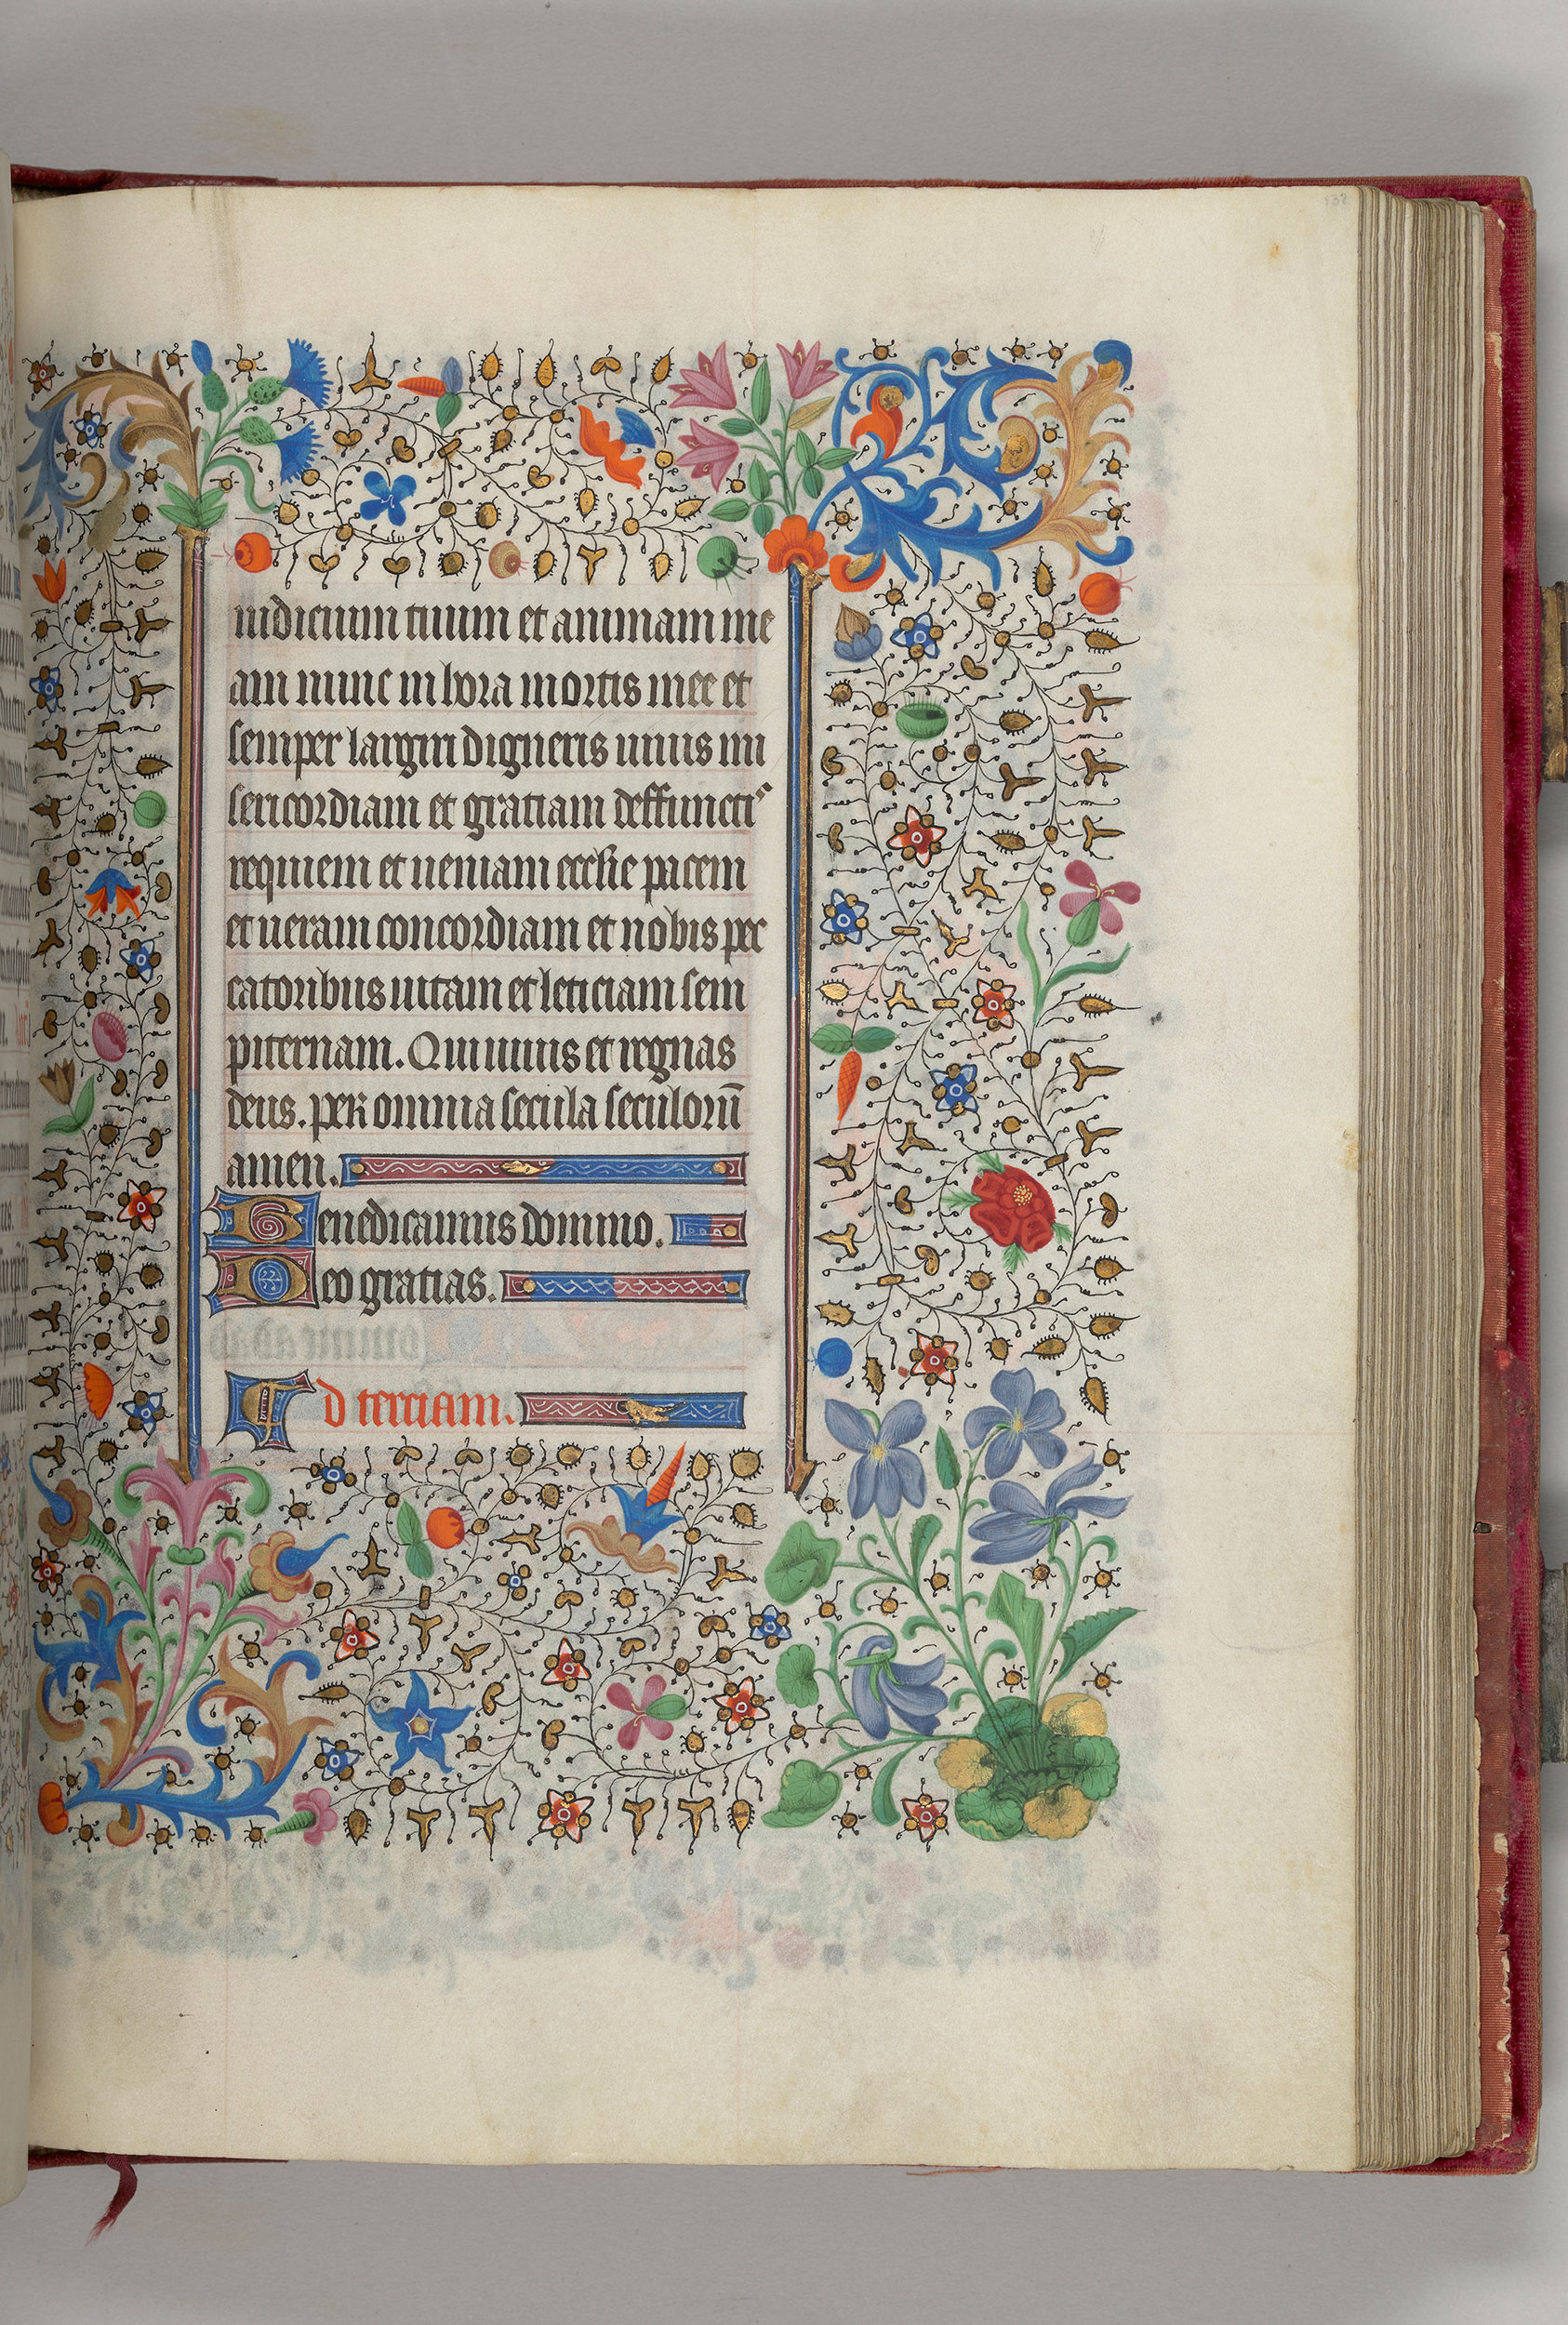 iudicium tuum et animam me
am nunc in hora mortis mee et
semper largiri digneris uiuis mi
sericordiam et gratiam deffunctis
requiem et ueniam ecclesie pacem
et ueram concordiam et nobis pec
catoribus uitam et leticiam sem
piternam. Qui uiuis et regnas
deus. per omnia secula seculorū
amen.
Benedicamus domino.
Deo gratias.
Ad terciam.